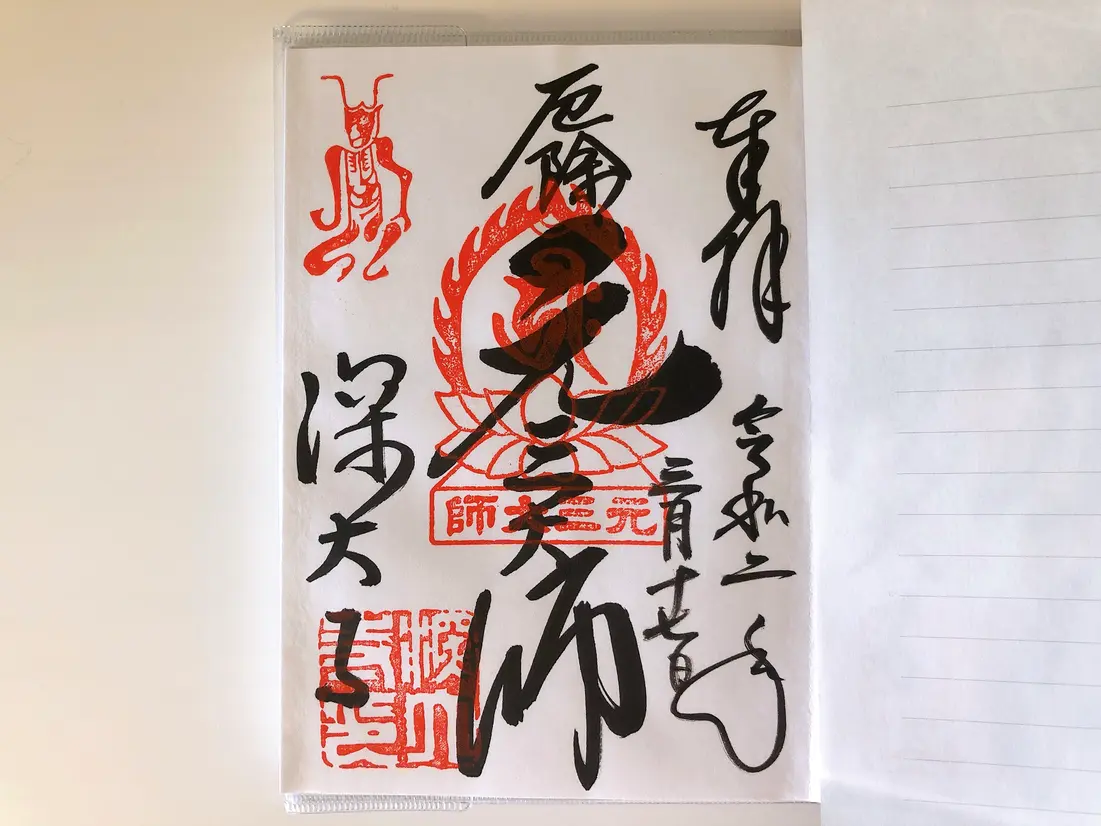 奉拝
令和二年
三月十七日
厄除
元三大師
元三大師
深大寺